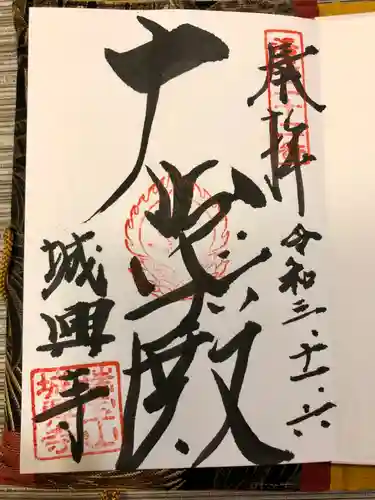 奉拝
令和三・十一・六
大悲殿
城興寺